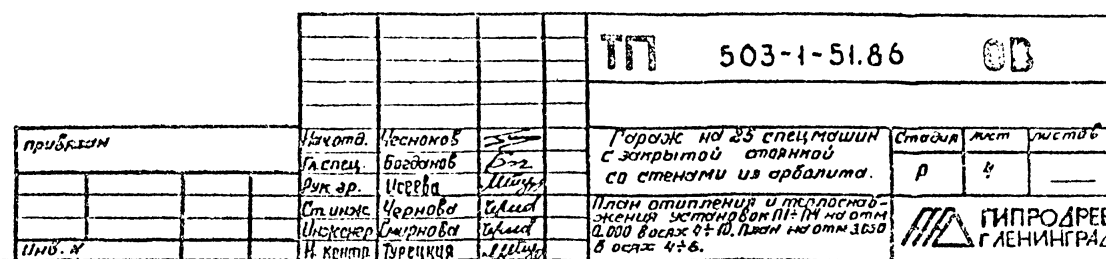 ТП 503-1-51.86 ОВ
привязан
Инв. №
Нач.отд. Чесноков
Гл.спец. Богданов
Рук.гр. Исеева
Ст.инж Чернова
Инженер Смирнова
Н.контр Турецкая
Гараж на 25 спецмашин
с закрытой стоянкой
со стенами из арболита.
Стадия лист листов
Р 4 —
План отопления и теплоснаб-
жения установок П1÷П4 на отм
0.000 в осях
План на отм
в осях 4÷6.
ГИПРОДРЕВ
г ЛЕНИНГРАД